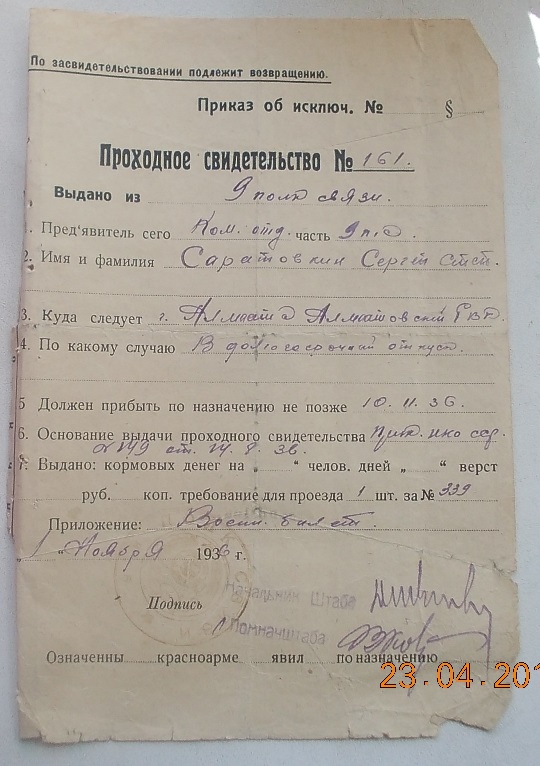 По засвидетельствовании подлежит возвращению.
Приказ об исключ. № §
Проходное свидетельство № 161.
Выдано из 9 полк связи.
1. Пред'явитель сего Ком. отд. часть 9 п.
2. Имя и фамилия Саратовкин Сергей Степ.
3. Куда следует г. Алмаата Алмаатовский РВК.
4. По какому случаю В долгосрочный отпуск.
5 Должен прибыть по назначению не позже 10.11.36.
6. Основание выдачи проходного свидетельства НКО ССР.
№ 149 от 14.8.36.
7. Выдано: кормовых денег на „ “ челов. дней „ “ верст
руб. коп. требование для проезда 1 шт. за № 339
Приложение: Воен. билет.
„ “ Ноября 1936 г.
Начальник Штаба
Подпись
Помначштаба
Означенны красноарме явил по назначению
23.04.201